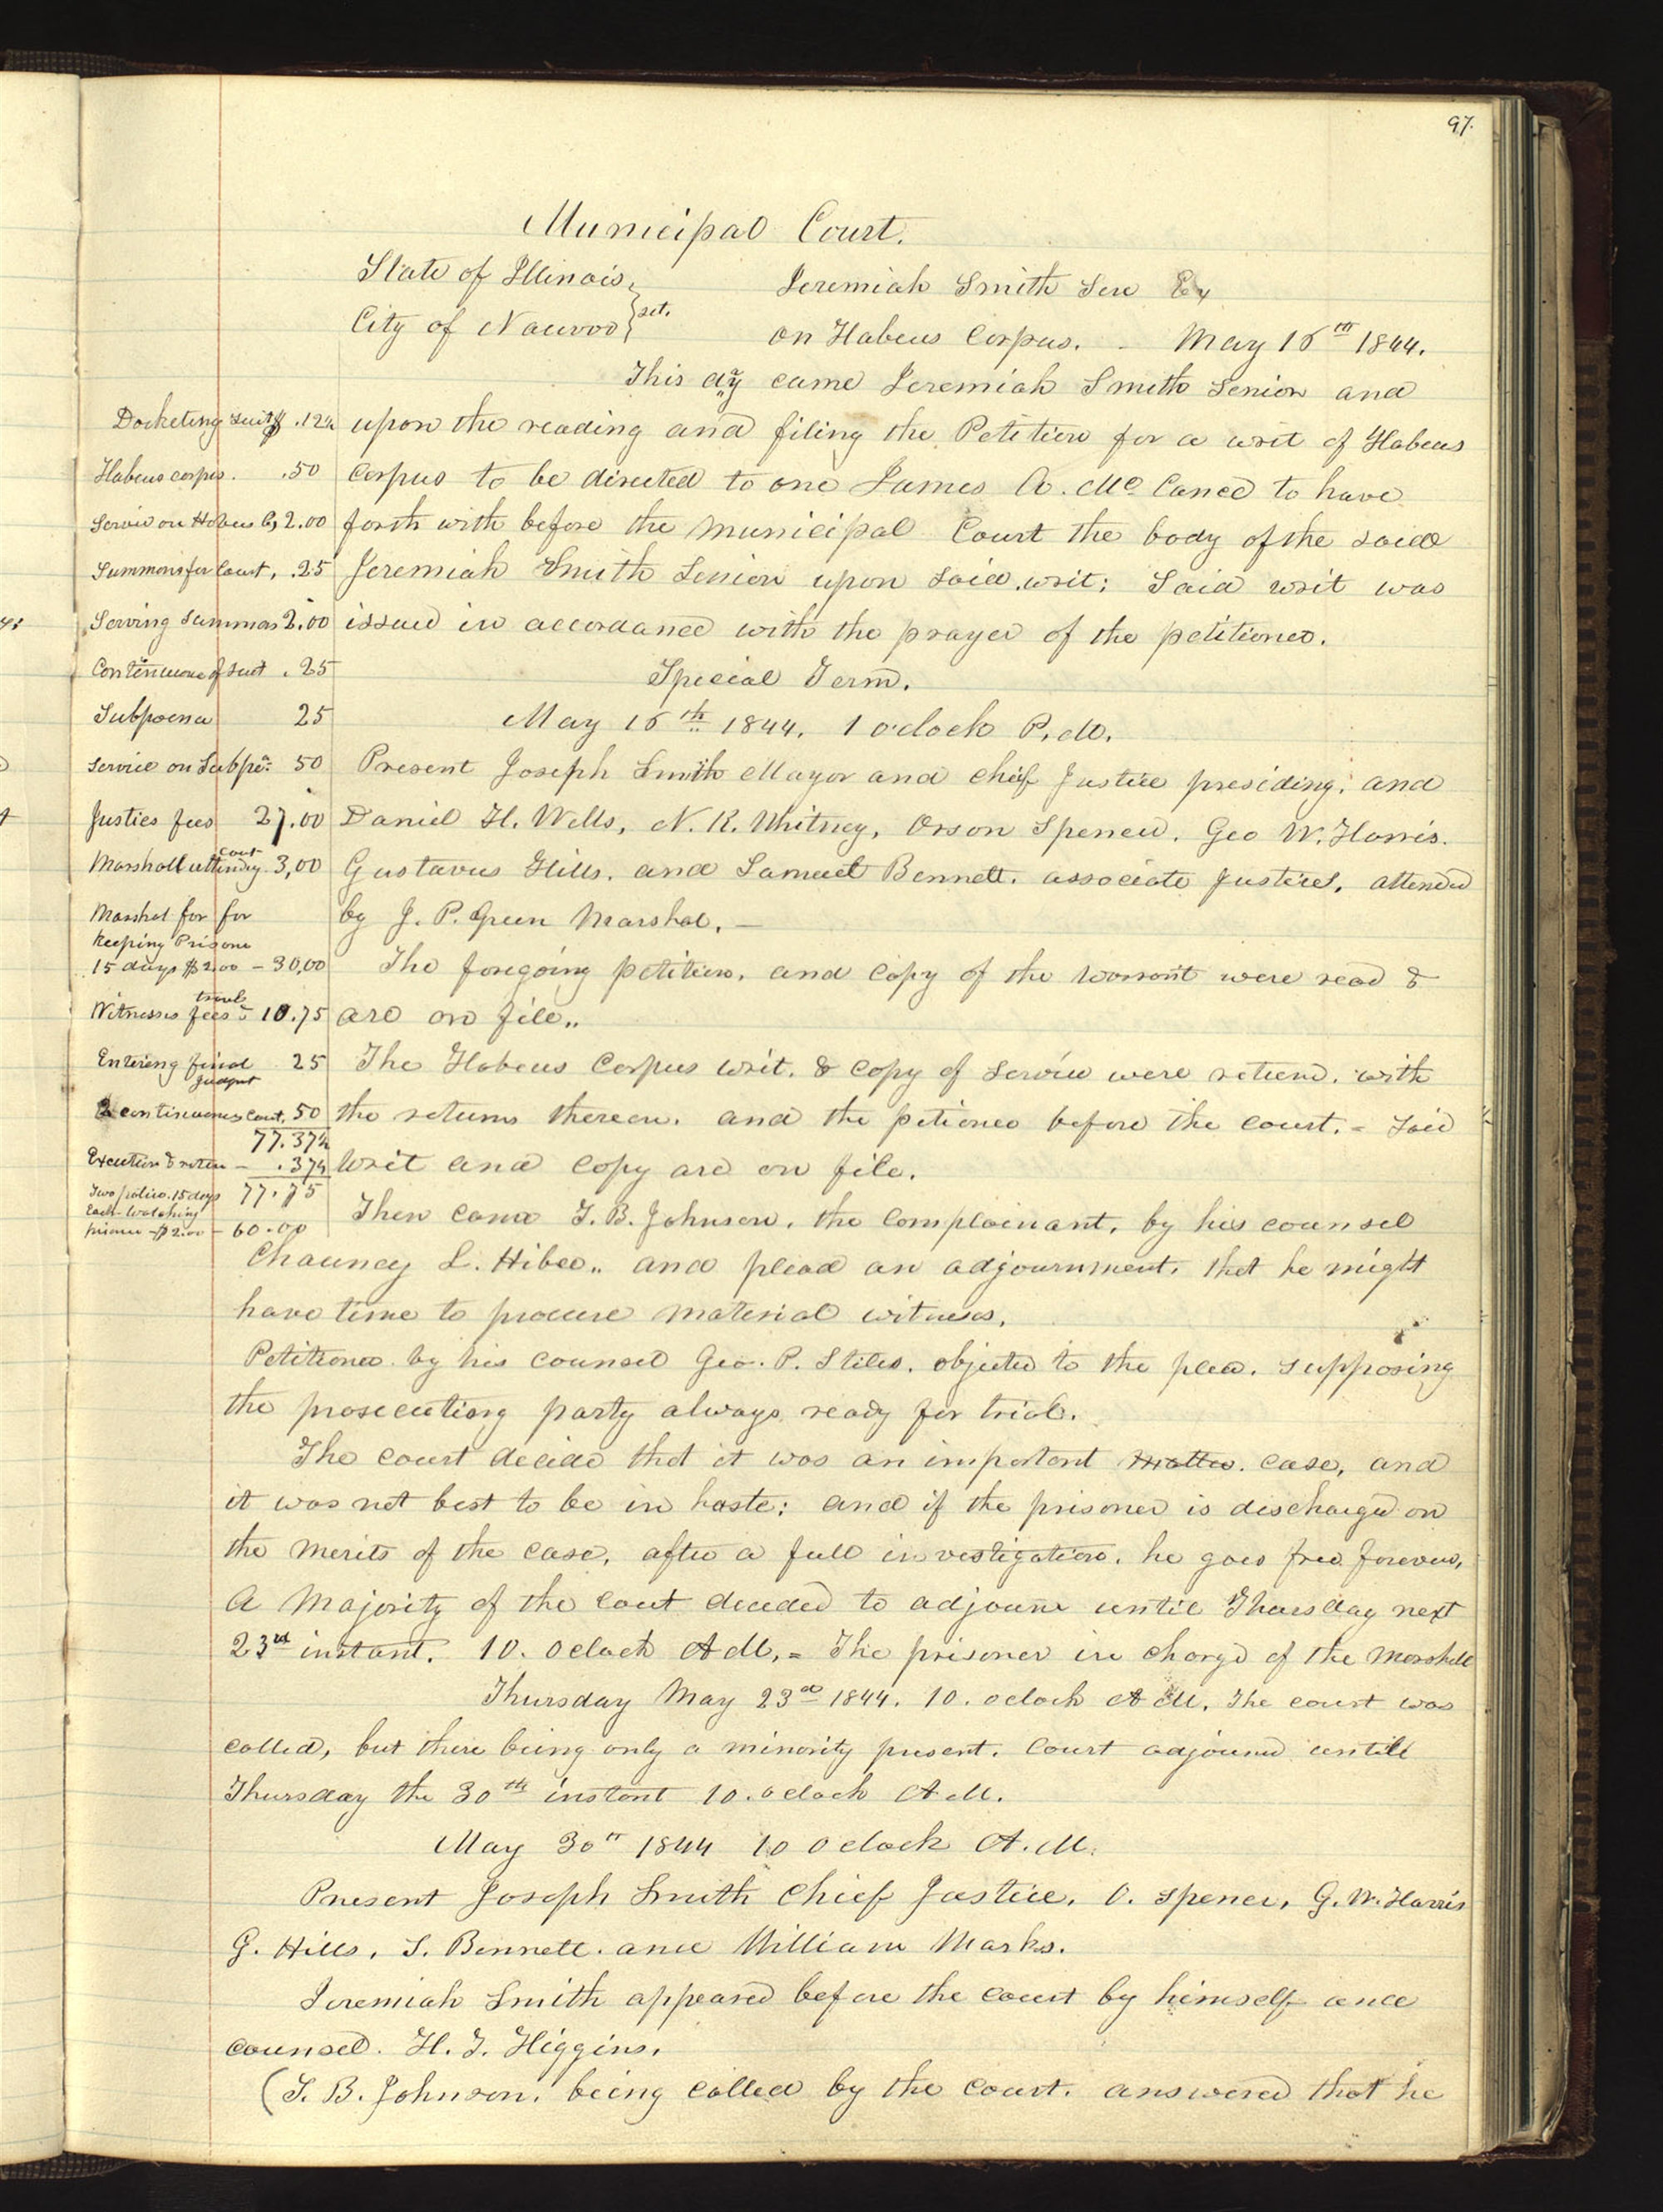 97.
Municipal Court.
State of Illinois,
City of Nauvoo } sct.
Jeremiah Smith Sen Ex
on Habeus Corpus. - May 16th 1844.
This day came Jeremiah Smith Senior and
upon the reading and filing the Petition for a writ of Habeus
Corpus to be directed to one James A. Mc Cance to have
forth with before the Municipal Court the body of the said
Jeremiah Smith Senior upon said writ; Said writ was
issued in accordance with the prayer of the petitioner.
Special Term.
May 16th 1844. 1 o'clock P.M.
Present Joseph Smith Mayor and chief Justice presiding; and
Daniel H. Wells, N. K. Whitney, Orson Spencer, Geo W. Harris.
Gustavus Hills. and Samuel Bennett. associate Justices, attended
by J. P. Green Marshal. —
The foregoing petition, and copy of the warrant were read &
are on file..
The Habeus Corpus writ. & copy of service were returnd. with
the returns thereon. and the petioner before the court. = Said
writ and copy are on file.
Then came T. B. Johnson, the complainant, by his counsel
Chauncy L. Hibee.. and plead an adjournment, that he might
have time to procure material witnesses,
Petitioner by his counsel Geo. P. Stiles. objected to the plea. supposing
the prosecuting party always ready for trial.
The court decide that it was an important matter. case, and
it was not best to be in haste; and if the prisoner is discharged on
the merits of the case, after a full investigation, he goes free forever,
A Majority of the Court decided to adjourn until Thursday next
23rd instant. 10. Oclock AM, = The prisoner in charge of the Marshall
Thursday May 23d 1844. 10. oclock A M. The court was
called, but there being only a minority present. Court adjournd untill
Thursday the 30th instant 10. oclock A M.
May 30th 1844 10 Oclock A. M.
Present Joseph Smith Chief Justice, O. Spencer, G. W. Harris
G. Hills, S. Bennett. and William Marks.
Jeremiah Smith appeared before the court by himself and
counsel. H. T. Higgins,
(T. B. Johnson, being called by the court. answered that he
Docketing suit $ .12½
Habeus corpus. .50
Service on Habeus Co 2.00
Summons for Court, .25
Serving summons 2.00
Continuence of suit .25
Subpoena 25
Service on Subpoe. 50
Justies fees 27.00
Marshall attending court 3,00
Marshal for for
keeping Prisone
15 days $2.00 - 30,00
Witnesses fees & travel 10.75
Entering final judgmt 25
2 continuences court, 50
77.37½
Execution & return - .37½
77.75
Two police. 15 days
Each watching
prisoner - $2.00 - 60.00